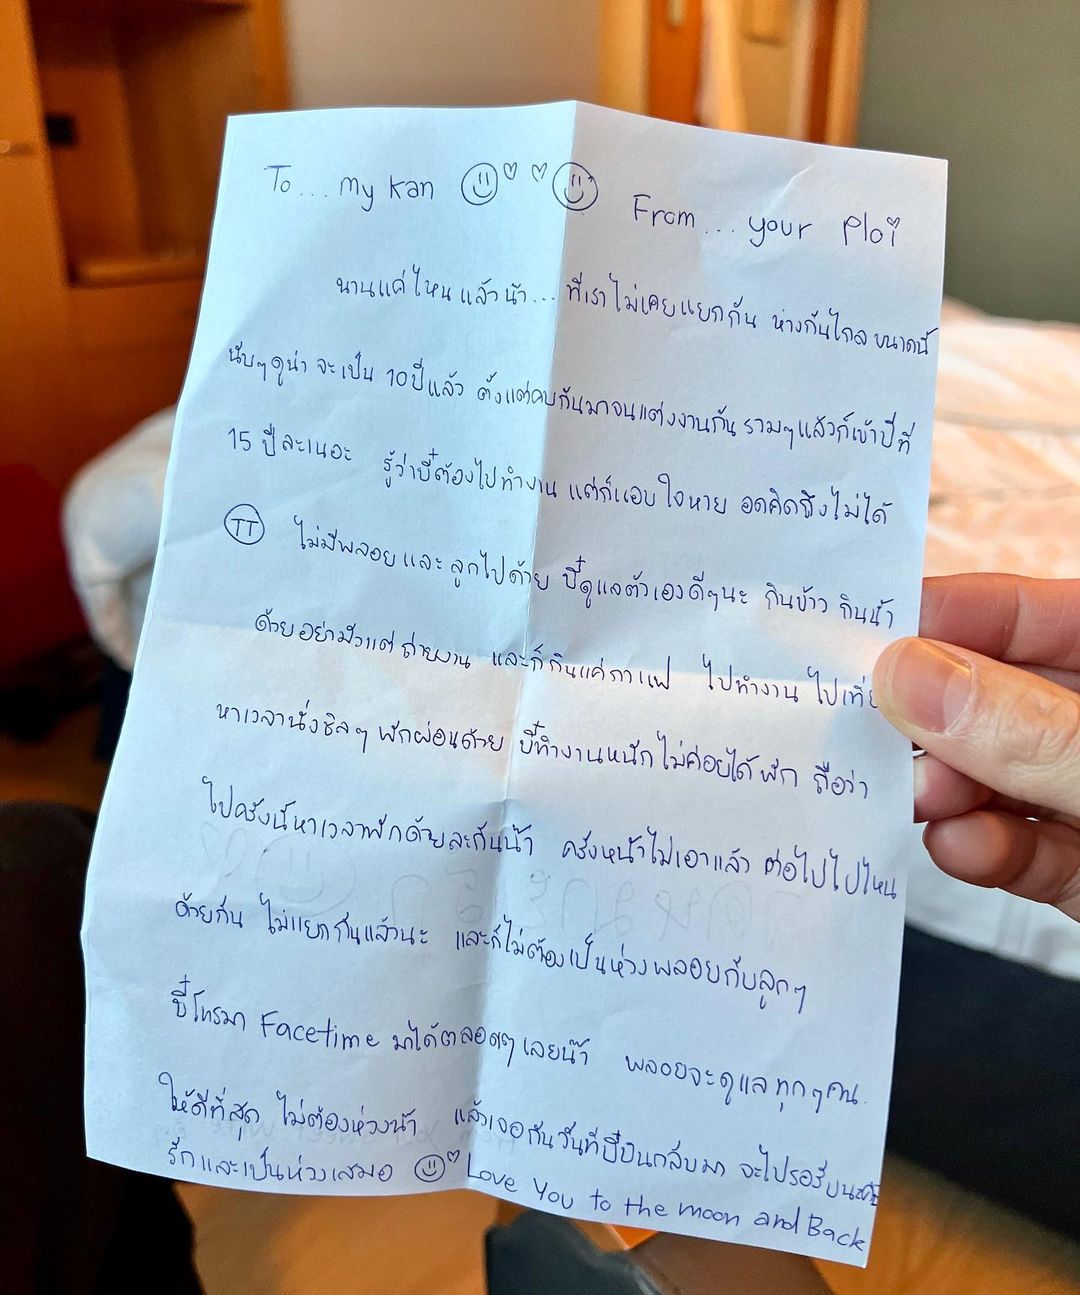 To... my kan From... your Ploi
นานแค่ไหนแล้วน้า... ที่เราไม่เคยแยกกัน ห่างกันไกลขนาดนี้
นับๆดูน่า จะเป็น 10 ปีแล้ว ตั้งแต่คบกันมาจนแต่งงานกัน รวมๆแล้วก็เข้าปีที่
15 ปีละเนอะ รู้ว่าบี๋ต้องไปทำงาน แต่ก็แอบใจหาย อดคิดถึงไม่ได้
TT ไม่มีพลอยและลูกไปด้วย บี๋ดูแลตัวเองดีๆนะ กินข้าว กินน้ำ
ด้วยอย่ามัวแต่ถ่ายงาน และก็กินแค่กาแฟ ไปทำงาน
หาเวลานั่งชิลๆ พักผ่อนด้วย บี๋ทำงานหนักไม่ค่อยได้พัก ถือว่า
ไปครั้งนี้หาเวลาพักด้วยละกันน้า ครั้งหน้าไม่เอาแล้ว ต่อไปไปไหน
ด้วยกัน ไม่แยกกันแล้วนะ และก็ไม่ต้องเป็นห่วงพลอยกับลูกๆ
บี๋โทรมา Facetime มาได้ตลอดๆเลยน้า พลอยจะดูแลทุกๆคน
ให้ดีที่สุด ไม่ต้องห่วงน้า แล้วเจอกันวันที่บี๋บินกลับมา จะไปรอรับนะคะ
รักและเป็นห่วงเสมอ Love You to the moon and Back